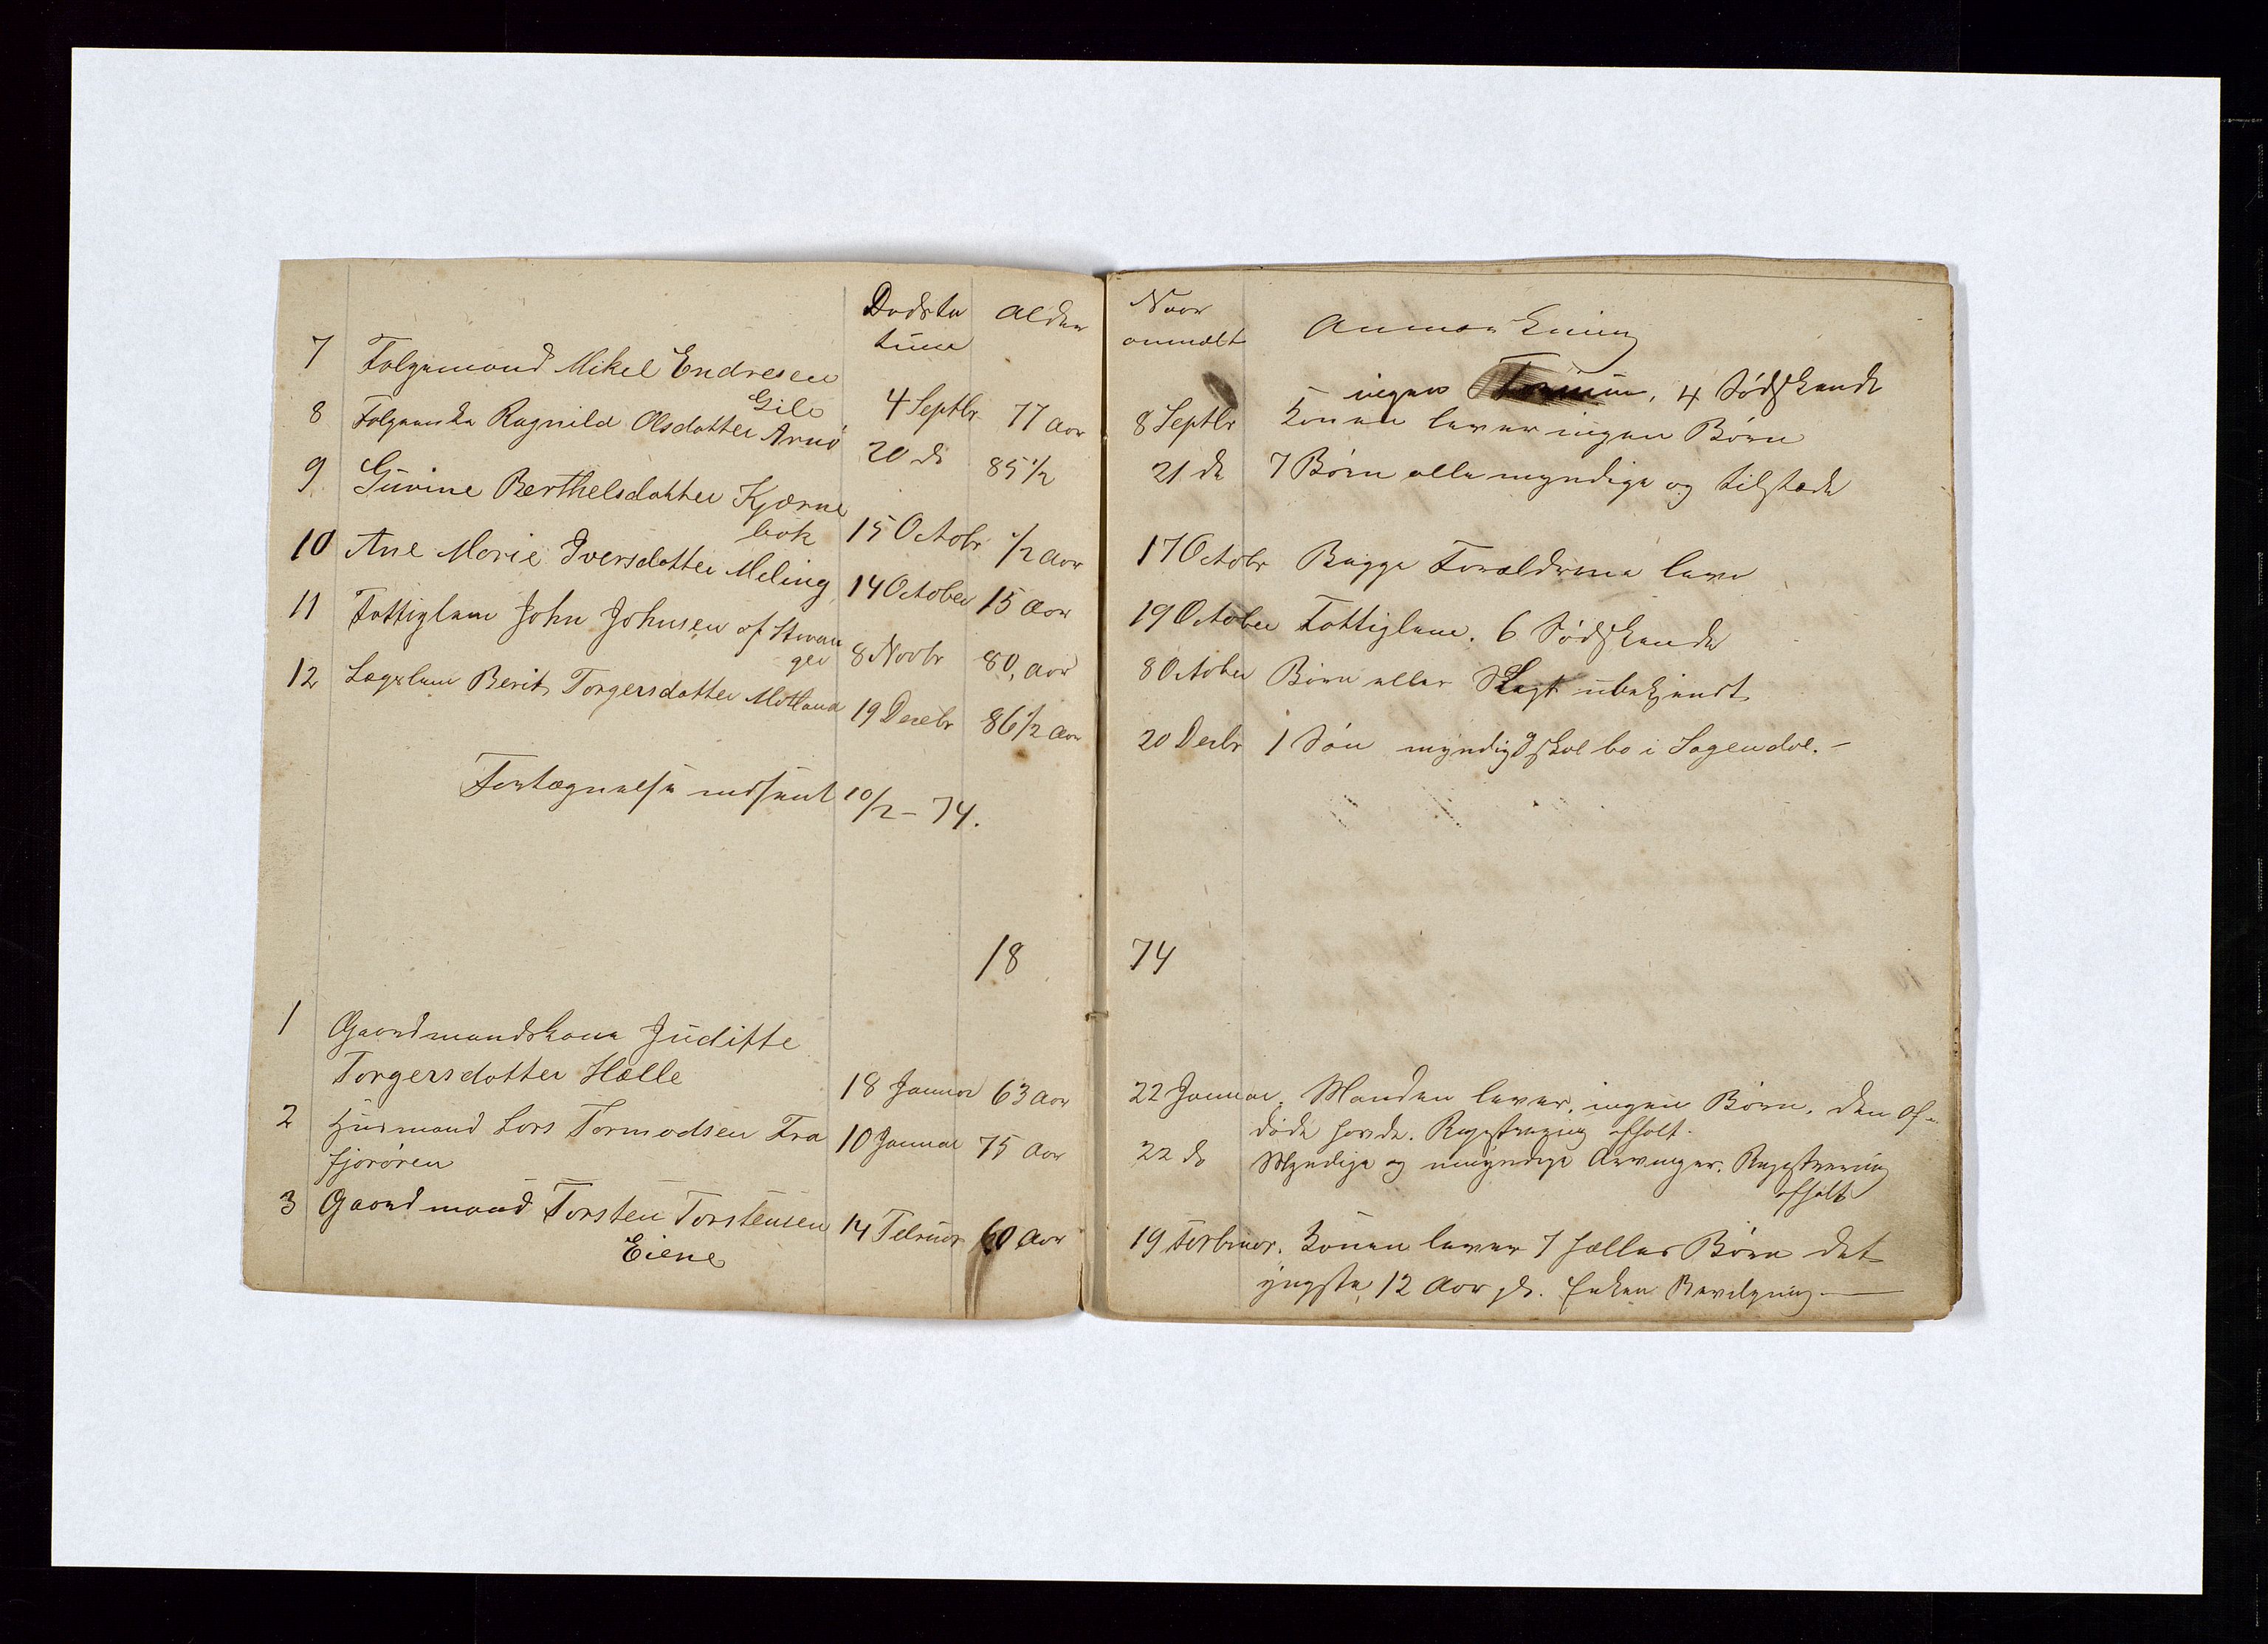 Dødste Alder
time
7 Folgemand Mikel Endresen
Gilo 4 Septbr 77 aar
8 Folgeenke Ragnild Olsdatter Arnø
20 do 85 1/2
9 Gurine Berthelsdatter Kjærne
bok 15 Octobr 1/2 aar
10 Ane Marie Iversdatter Meling
14 October 15 Aar
11 Fattiglem John Johnsen af Stvan
ger 8 Novbr 80, aar
12 Lægslem Berit Torgersdatter Motland
19 Decebr 86 1/2 aar
Fortægnelse indsent 10/2 - 74.
18
1 Gaardmandskone Juditte
Torgersdatter Hælle 18 Januar 63 aar
2 Husmand Lars Tormodsen Fra
fjorøren 10 Januar 75 Aar
3 Gaardmand Torsten Torstensen
Eiene 14 Februar 60 Aar
Naar
anmeldt Anmærkning
ingen 4 Sødskende
8 Septbr Konen lever ingen Børn
21 do 7 Børn alle myndige og tilstæde
17 Octobr Begge Foreldrene leve
19 October Fattiglem. 6 Sødskende
8 October Børn eller Slegt ubekjendt
20 Decbr 1 Søn myndig skal bo i Sogendal. -
74
22 Januar. Manden lever, ingen Børn, den af-
døde havde. Registrering afholt.
22 do Myndige og umyndige Arvinger. Registrering
afholt
19 Forbruar. Konen lever 7 fælles Børn det
yngste 12 Aar gl. Enken Bevilgning.